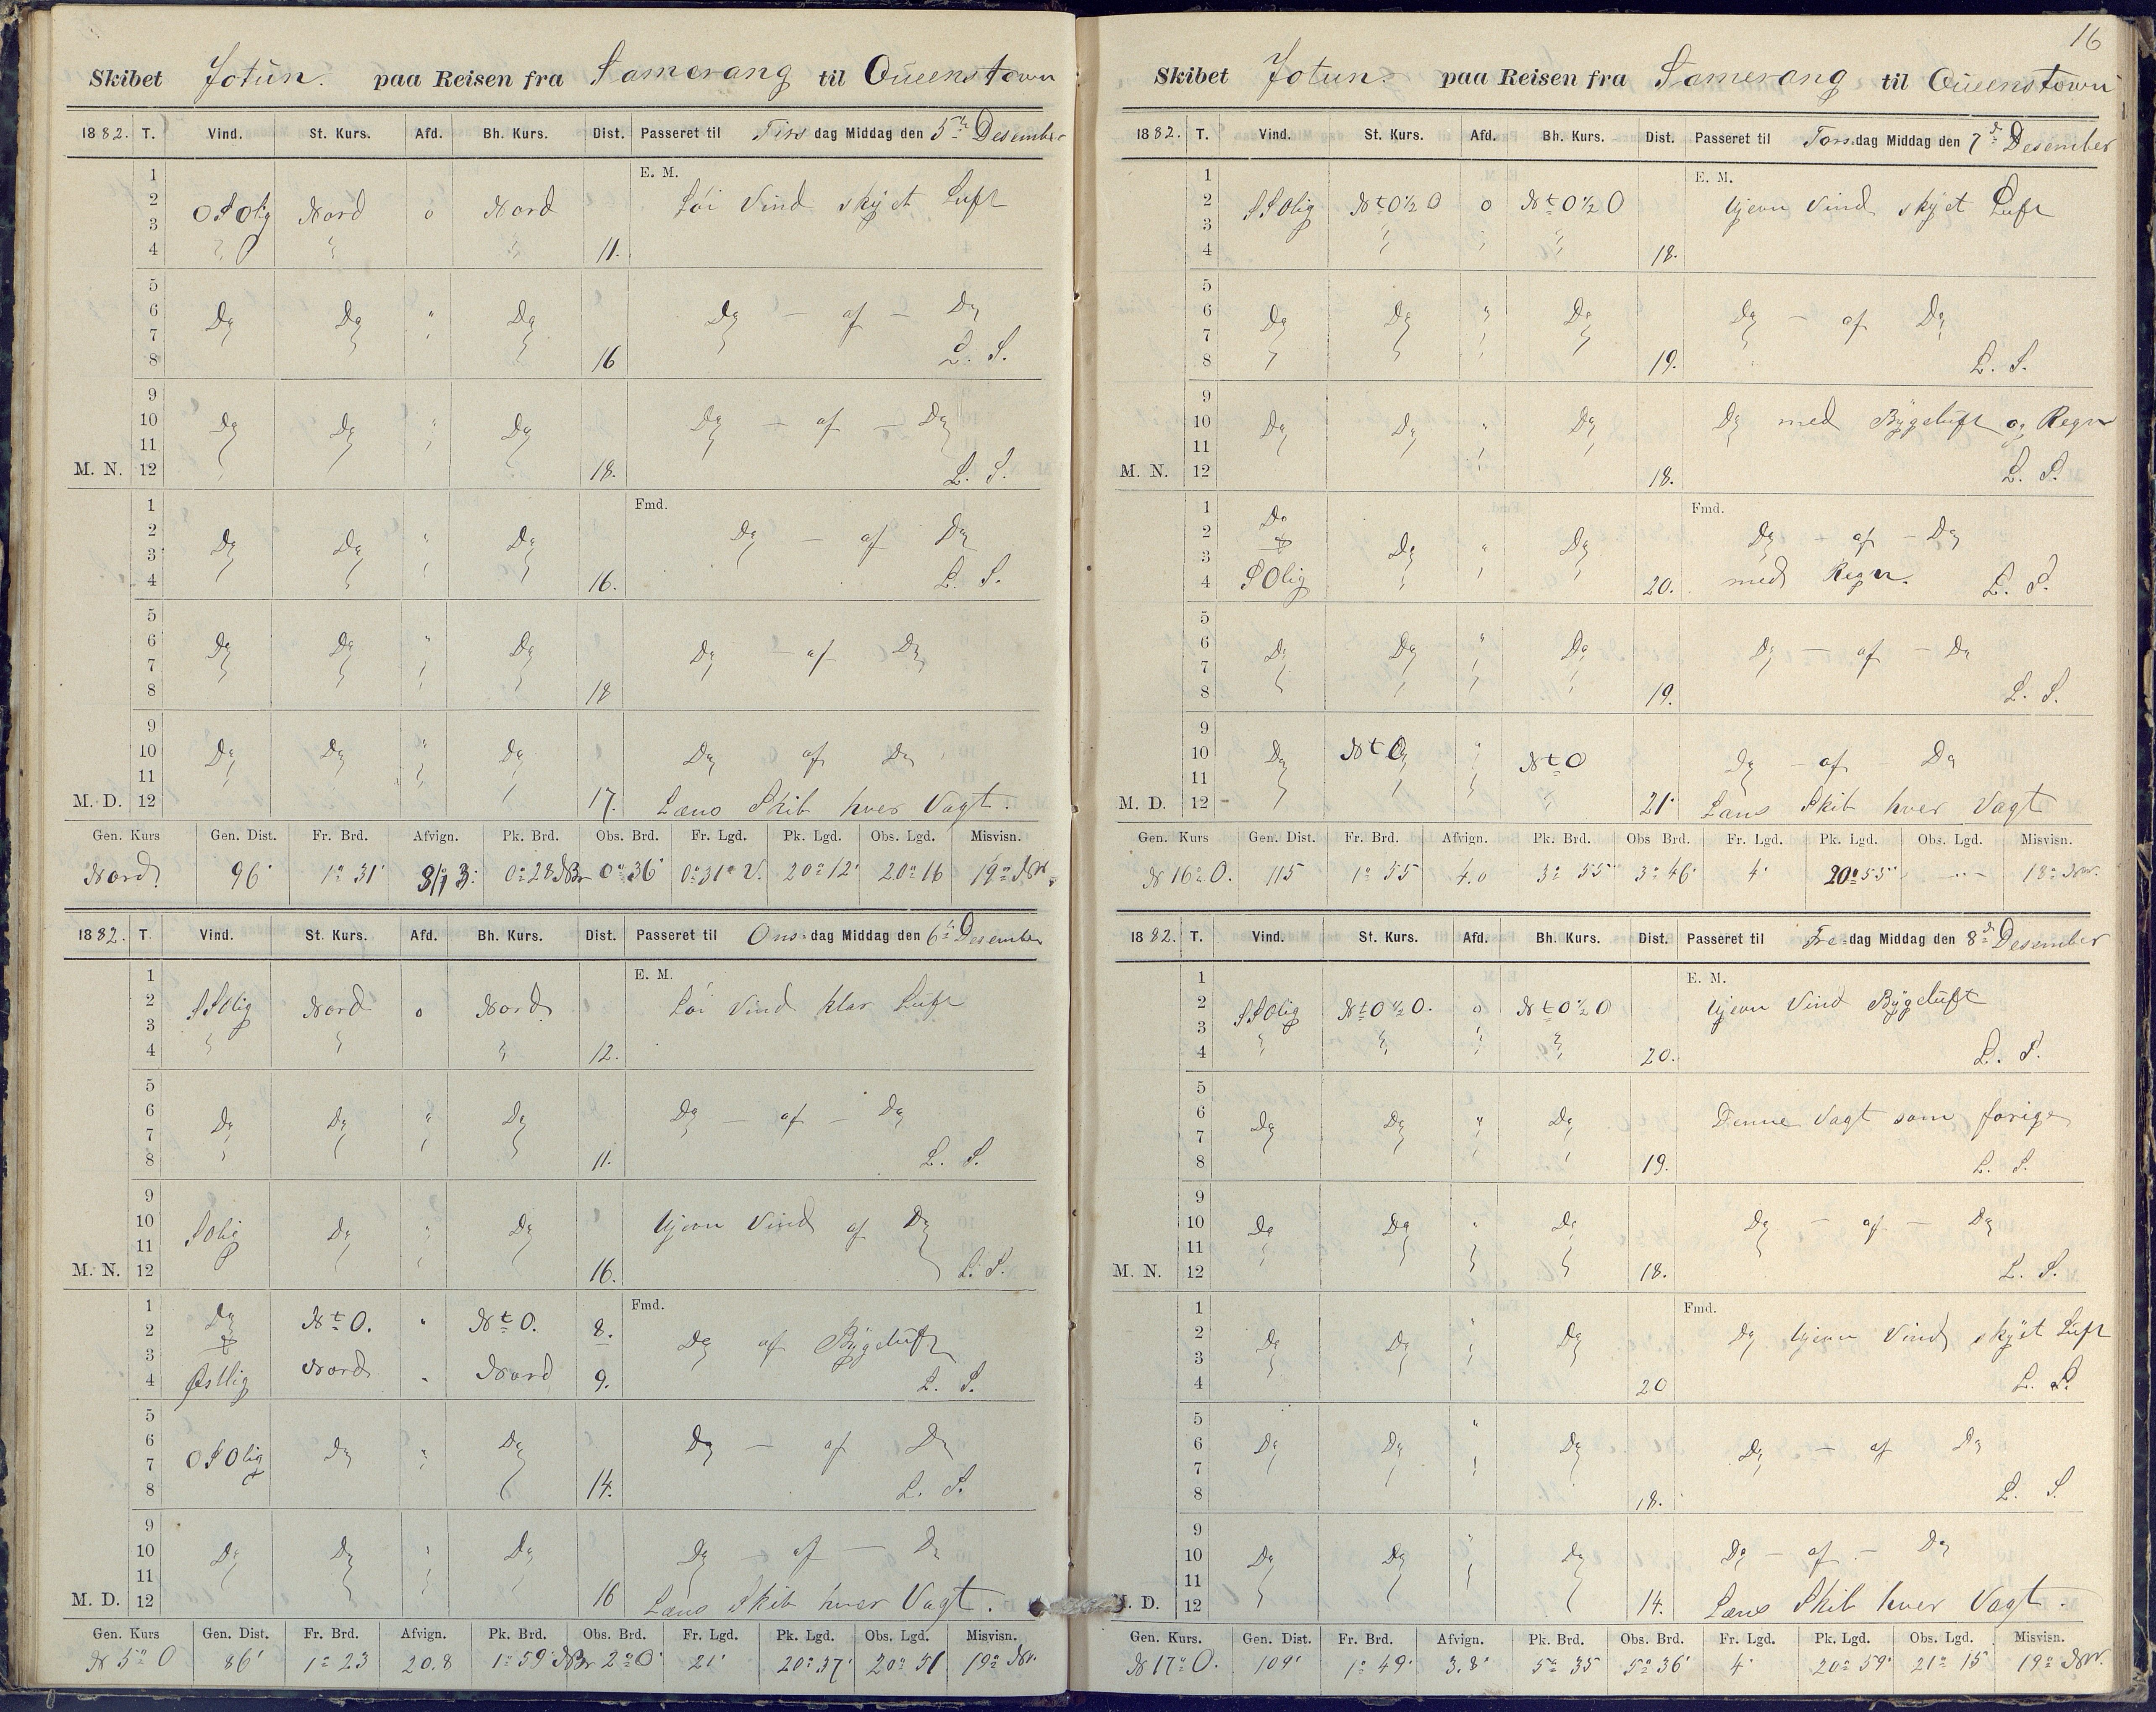 Skibet Jotun. paa Reisen fra Samerang til Queenstown
1882. T. Vind. St. Kurs. Afd. Bh. Kurs. Dist. Passeret til Tirsdag Middag den 5te Desember
1 E. M.
2 OSOlig Nord 0 Nord Löi Vind skÿet Luft
3
4 11.
5
6 Do Do " Do Do — af — Do
7
8 16 L. S.
9
10 Do Do " Do Do — af — Do
11
M. N. 12 18. L. S.
1 Fmd.
2 Do Do " Do Do — af Do
3
4 16. L. S.
5
6 Do Do " Do Do — af Do
7
8 18
9
10 Do Do " Do Do af Do
11
M. D. 12 17. Læns Skib hver Vagt.
Gen. Kurs Gen. Dist. Fr. Brd. Afvign. Pk. Brd. Obs. Brd. Fr. Lgd. Pk. Lgd. Obs. Lgd. Misvisn.
Nord. 96' 1° 31' 0° 28 NBr 0° 36' 0° 31' V. 20° 12' 20° 16 19° NW.
1882. T. Vind. St. Kurs. Afd. Bh. Kurs. Dist. Passeret til Onsdag Middag den 6te Desember
1 E. M.
2 SSOlig Nord 0 Nord Löi Vind klar Luft
3
4 12.
5
6 Do Do " Do Do — af — Do
7
8 11. L. S.
9
10 SOlig Do " Do Vind af Do
11
M. N. 12 16. L. S.
1 Fmd.
2 Do NtO. " NtO. 8. Do af Bÿgeluft
3
4 Østlig Nord " Nord 9. L. S.
5
6 OSOlig Do " Do Do — af Do
7
8 14. L. S.
9
10 Do Do " Do Do — af — Do
11
M. D. 12 16 Læns Skib hver Vagt.
Gen. Kurs Gen. Dist. Fr. Brd. Afvign. Pk. Brd. Obs. Brd. Fr. Lgd. Pk. Lgd. Obs. Lgd. Misvisn.
N 5° O 86' 1° 23 20.8 1° 59' NBr 2° 0' 21' 20° 37' 20° 51 19° NW.
16
Skibet Jotun. paa Reisen fra Samerang til Queenstown
1882. T. Vind. St. Kurs. Afd. Bh. Kurs. Dist. Passeret til Torsdag Middag den 7d Desember
1 E. M.
2 SSOlig NtO½O 0 NtO½O Vind skÿet Luft
3
4 18.
5
6 Do Do " Do Do — af Do
7
8 19. L. S.
9
10 Do Do " Do Do med Bÿgeluft og Regn
11
M. N. 12 18. L. S.
1 Fmd.
2 Do Do " Do Do af — Do
3
4 SOlig 20. med Regn. L. S.
5
6 Do Do " Do Do — af — Do
7
8 19. L. S.
9
10 Do NtO " NtO Do — af — Do
11
M. D. 12 21' Læns Skib hver Vagt
Gen. Kurs Gen. Dist. Fr. Brd. Afvign. Pk. Brd. Obs Brd. Fr. Lgd. Pk. Lgd. Obs. Lgd. Misvisn.
N 16° O. 115 1° 55 4.0 3° 55' 3° 46' 4' 20° 55' — 18° NW.
1882. T. Vind. St. Kurs. Afd. Bh. Kurs. Dist. Passeret til Fredag Middag den 8d Desember
1 E. M.
2 SSOlig NtO½O. 0 NtO½O Vind Bÿgeluft
3
4 20. L. S.
5
6 Do Do " Do Denne Vagt som forige
7
8 19. L. S.
9
10 Do Do " Do Do — af — Do
11
M. N. 12 18. L. S.
1 Fmd.
2 Do Do " Do Do Vind skÿet Luft
3
4 20 L. S.
5
6 Do Do " Do Do — af Do
7
8 18. L. S.
9
10 Do Do " Do Do — af — Do
11
M. D. 12 14. Læns Skib hver Vagt.
Gen. Kurs. Gen. Dist. Fr. Brd. Afvign. Pk. Brd. Obs. Brd. Fr. Lgd. Pk. Lgd. Obs. Lgd. Misvisn.
N 17° O. 109' 1° 49' 3.8' 5° 35 5° 36' 4' 20° 59' 21° 15 19° NW.